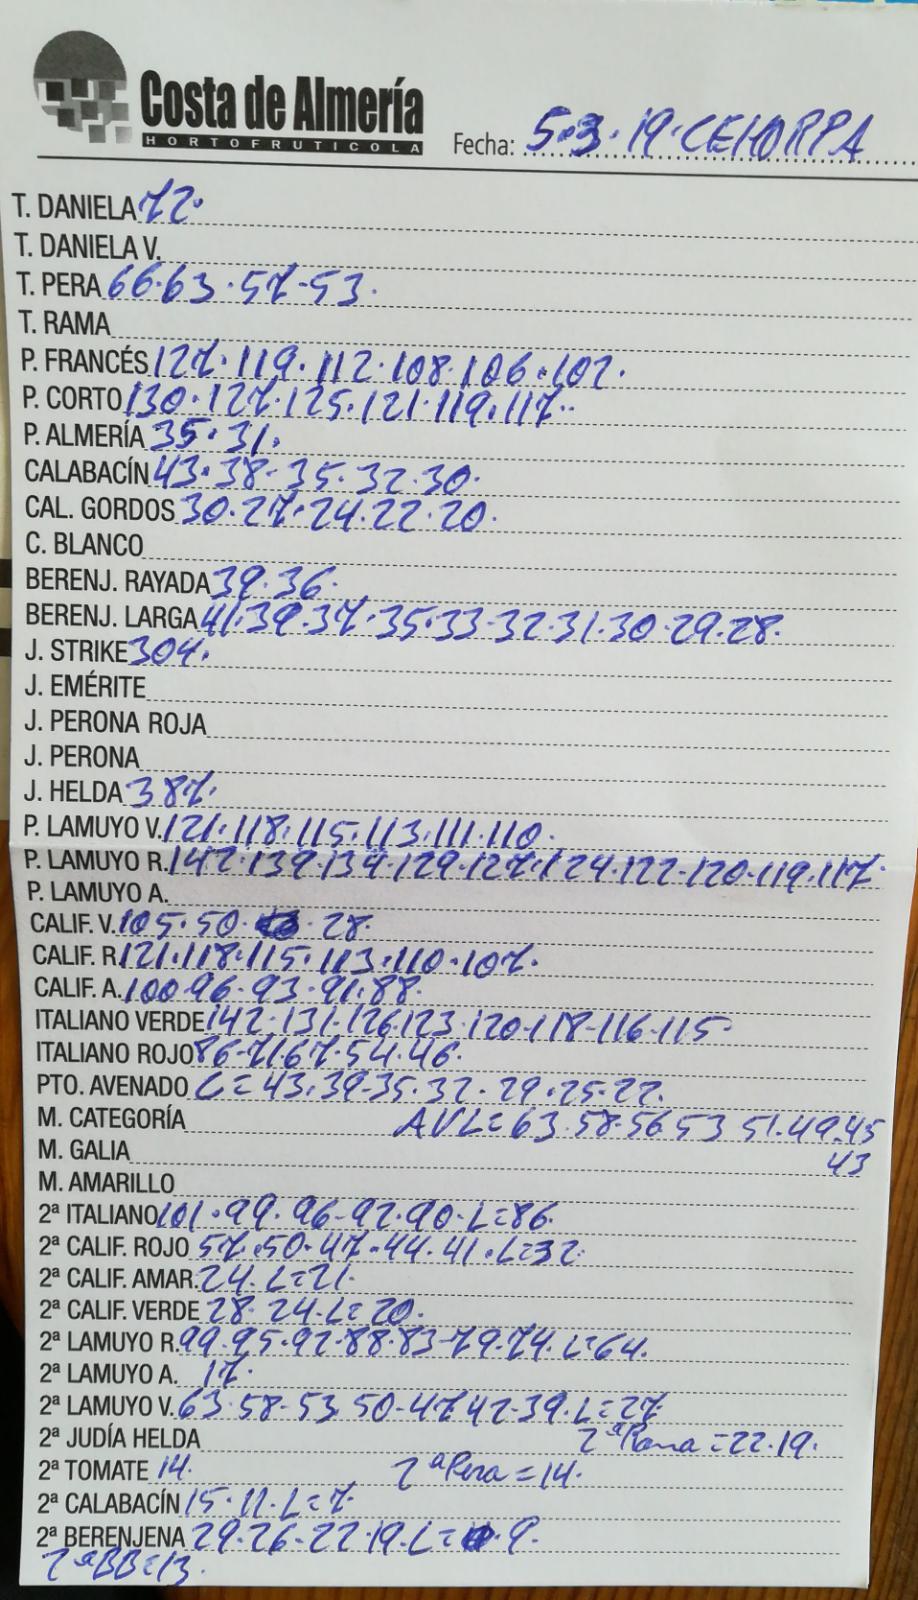 Costa de Almería
HORTOFRUTICOLA
Fecha: 5.3.19.CEHORPA
T. DANIELA 72.
T. DANIELA V.
T. PERA 66.63.57-53.
T. RAMA
P. FRANCÉS 127.119.112.108.106.102.
P. CORTO 130.127.125.121.119.117..
P. ALMERÍA 35.31.
CALABACÍN 43.38-35.32.30.
CAL. GORDOS 30.27.24.22.20.
C. BLANCO
BERENJ. RAYADA 39.36.
BERENJ. LARGA 41.39.37.35.33-32.31.30-29.28.
J. STRIKE 304.
J. EMÉRITE
J. PERONA ROJA
J. PERONA
J. HELDA 387.
P. LAMUYO V. 121.118.115.113.111.110.
P. LAMUYO R. 142.139.134.129.127.124.122-120-119.117.
P. LAMUYO A.
CALIF. V. 105.50. 28.
CALIF. R. 121.118.115.113.110.107.
CALIF. A. 100-96-93-91.88.
ITALIANO VERDE 142.131.126.123.120.118-116-115
ITALIANO ROJO 86-71 67.54.46.
PTO. AVENADO C=43.39-35.32.29.25-22.
M. CATEGORÍA AVL=63.58.56 53 51.49.45
M. GALIA 43
M. AMARILLO
2ª ITALIANO 101.99.96-92.90.L=86.
2ª CALIF. ROJO 57.50-47.44.41.L=32.
2ª CALIF. AMAR. 24.L=21.
2ª CALIF. VERDE 28.24.L=20.
2ª LAMUYO R. 99.95-92-88.83-79.74.L=64.
2ª LAMUYO A. 17.
2ª LAMUYO V. 63.58-53.50-47 42-39.L=27.
2ª JUDÍA HELDA 2ª Rama=22.19.
2ª TOMATE 14. 2ª Pera=14.
2ª CALABACÍN 15.11.L=7.
2ª BERENJENA 29.26-22.19.L= 9.
2ªBB=13.